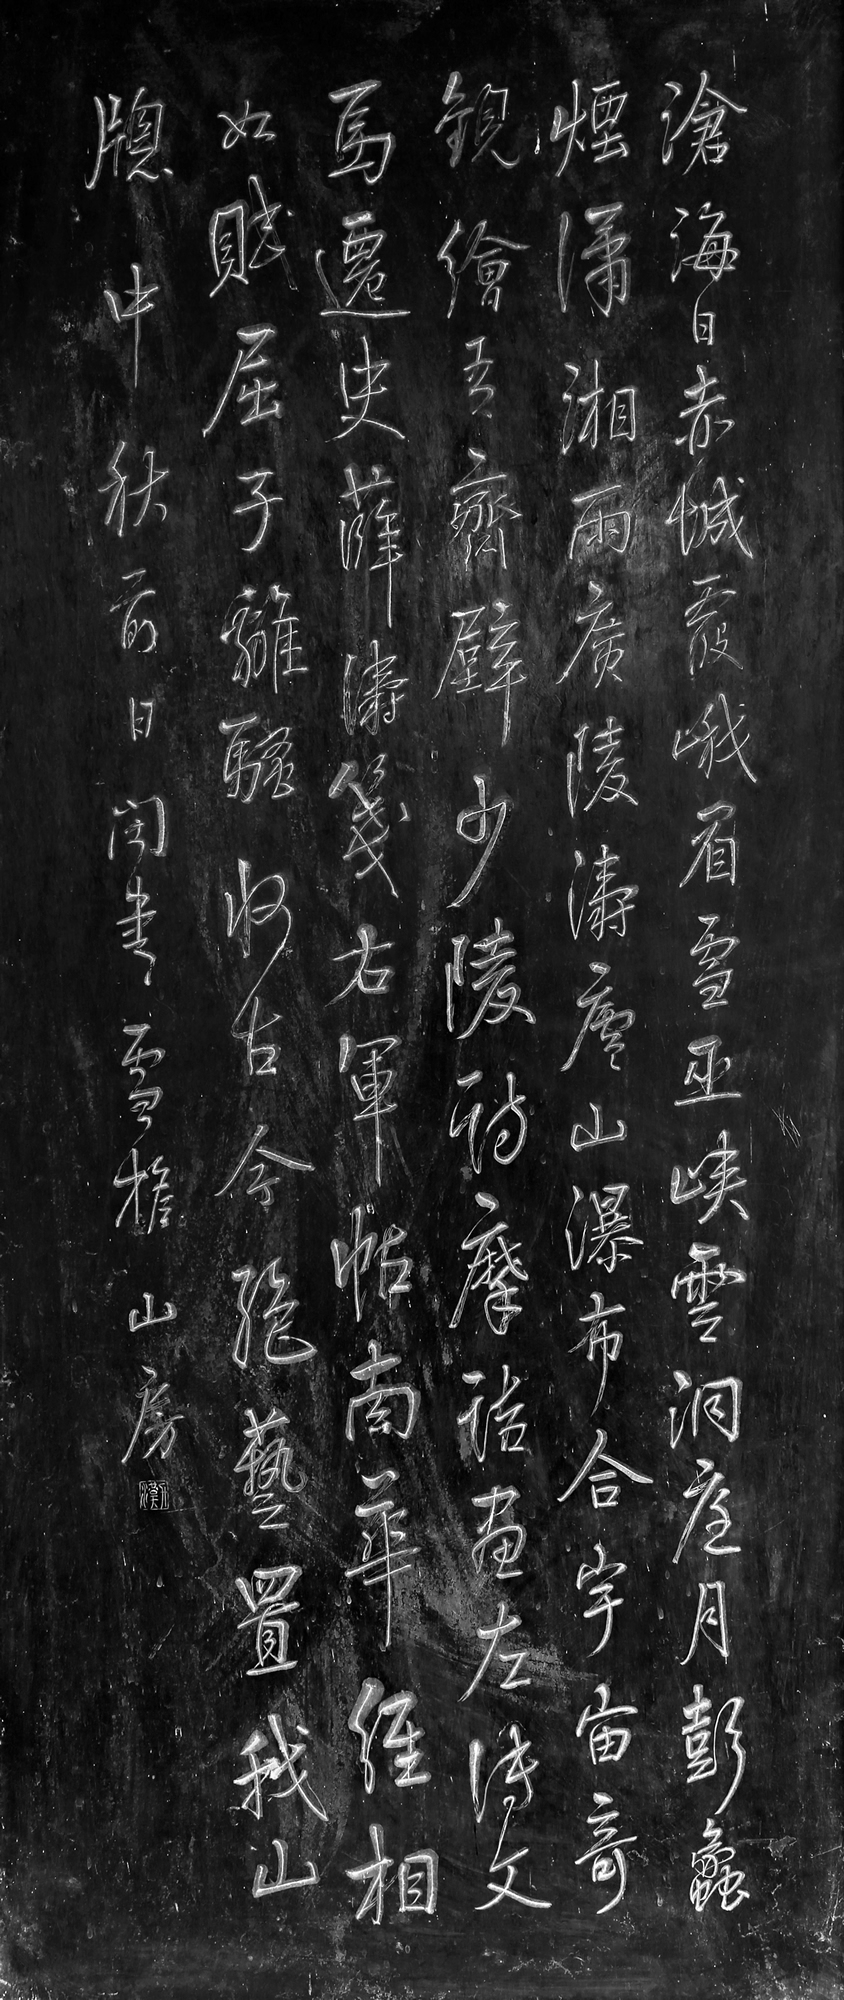 滄海日赤城霞峨眉雪巫峽雲洞庭月彭蠡
煙瀟湘雨廣陵濤廬山瀑布合宇宙奇
觀繪吾齋壁少陵詩摩詰畫左傳文
馬遷史薛濤箋右軍帖南華經相
如賦屈子離騷收古今絕藝置我山
牕中秋前日閏書雪樵山房